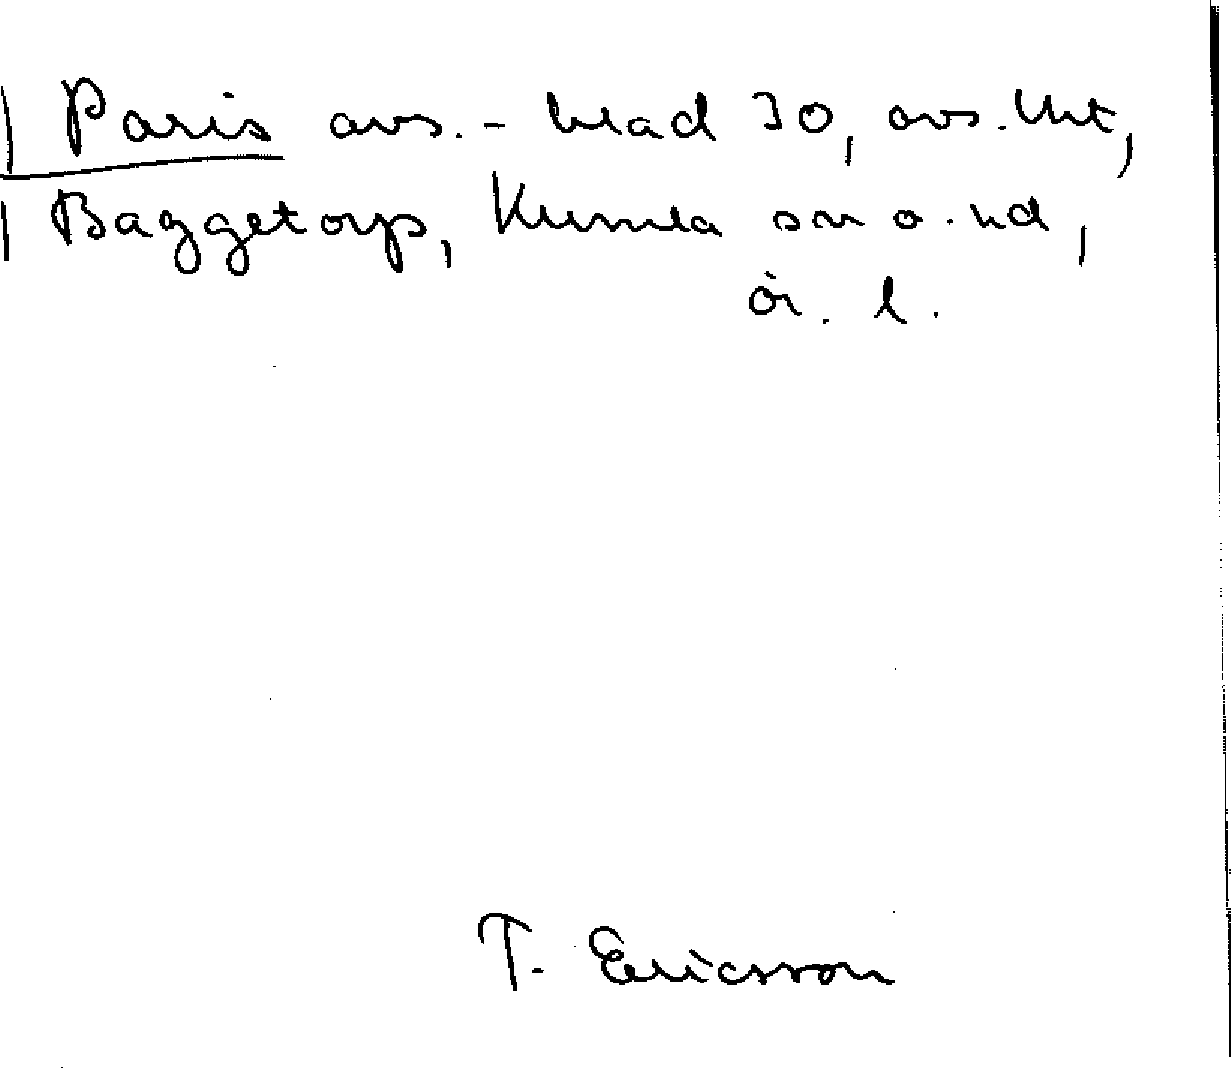 Paris avs. - blad 30, avs. Uht,
Baggetorp, Kumla sn o. hd,
Ör. l.
T. Ericsson